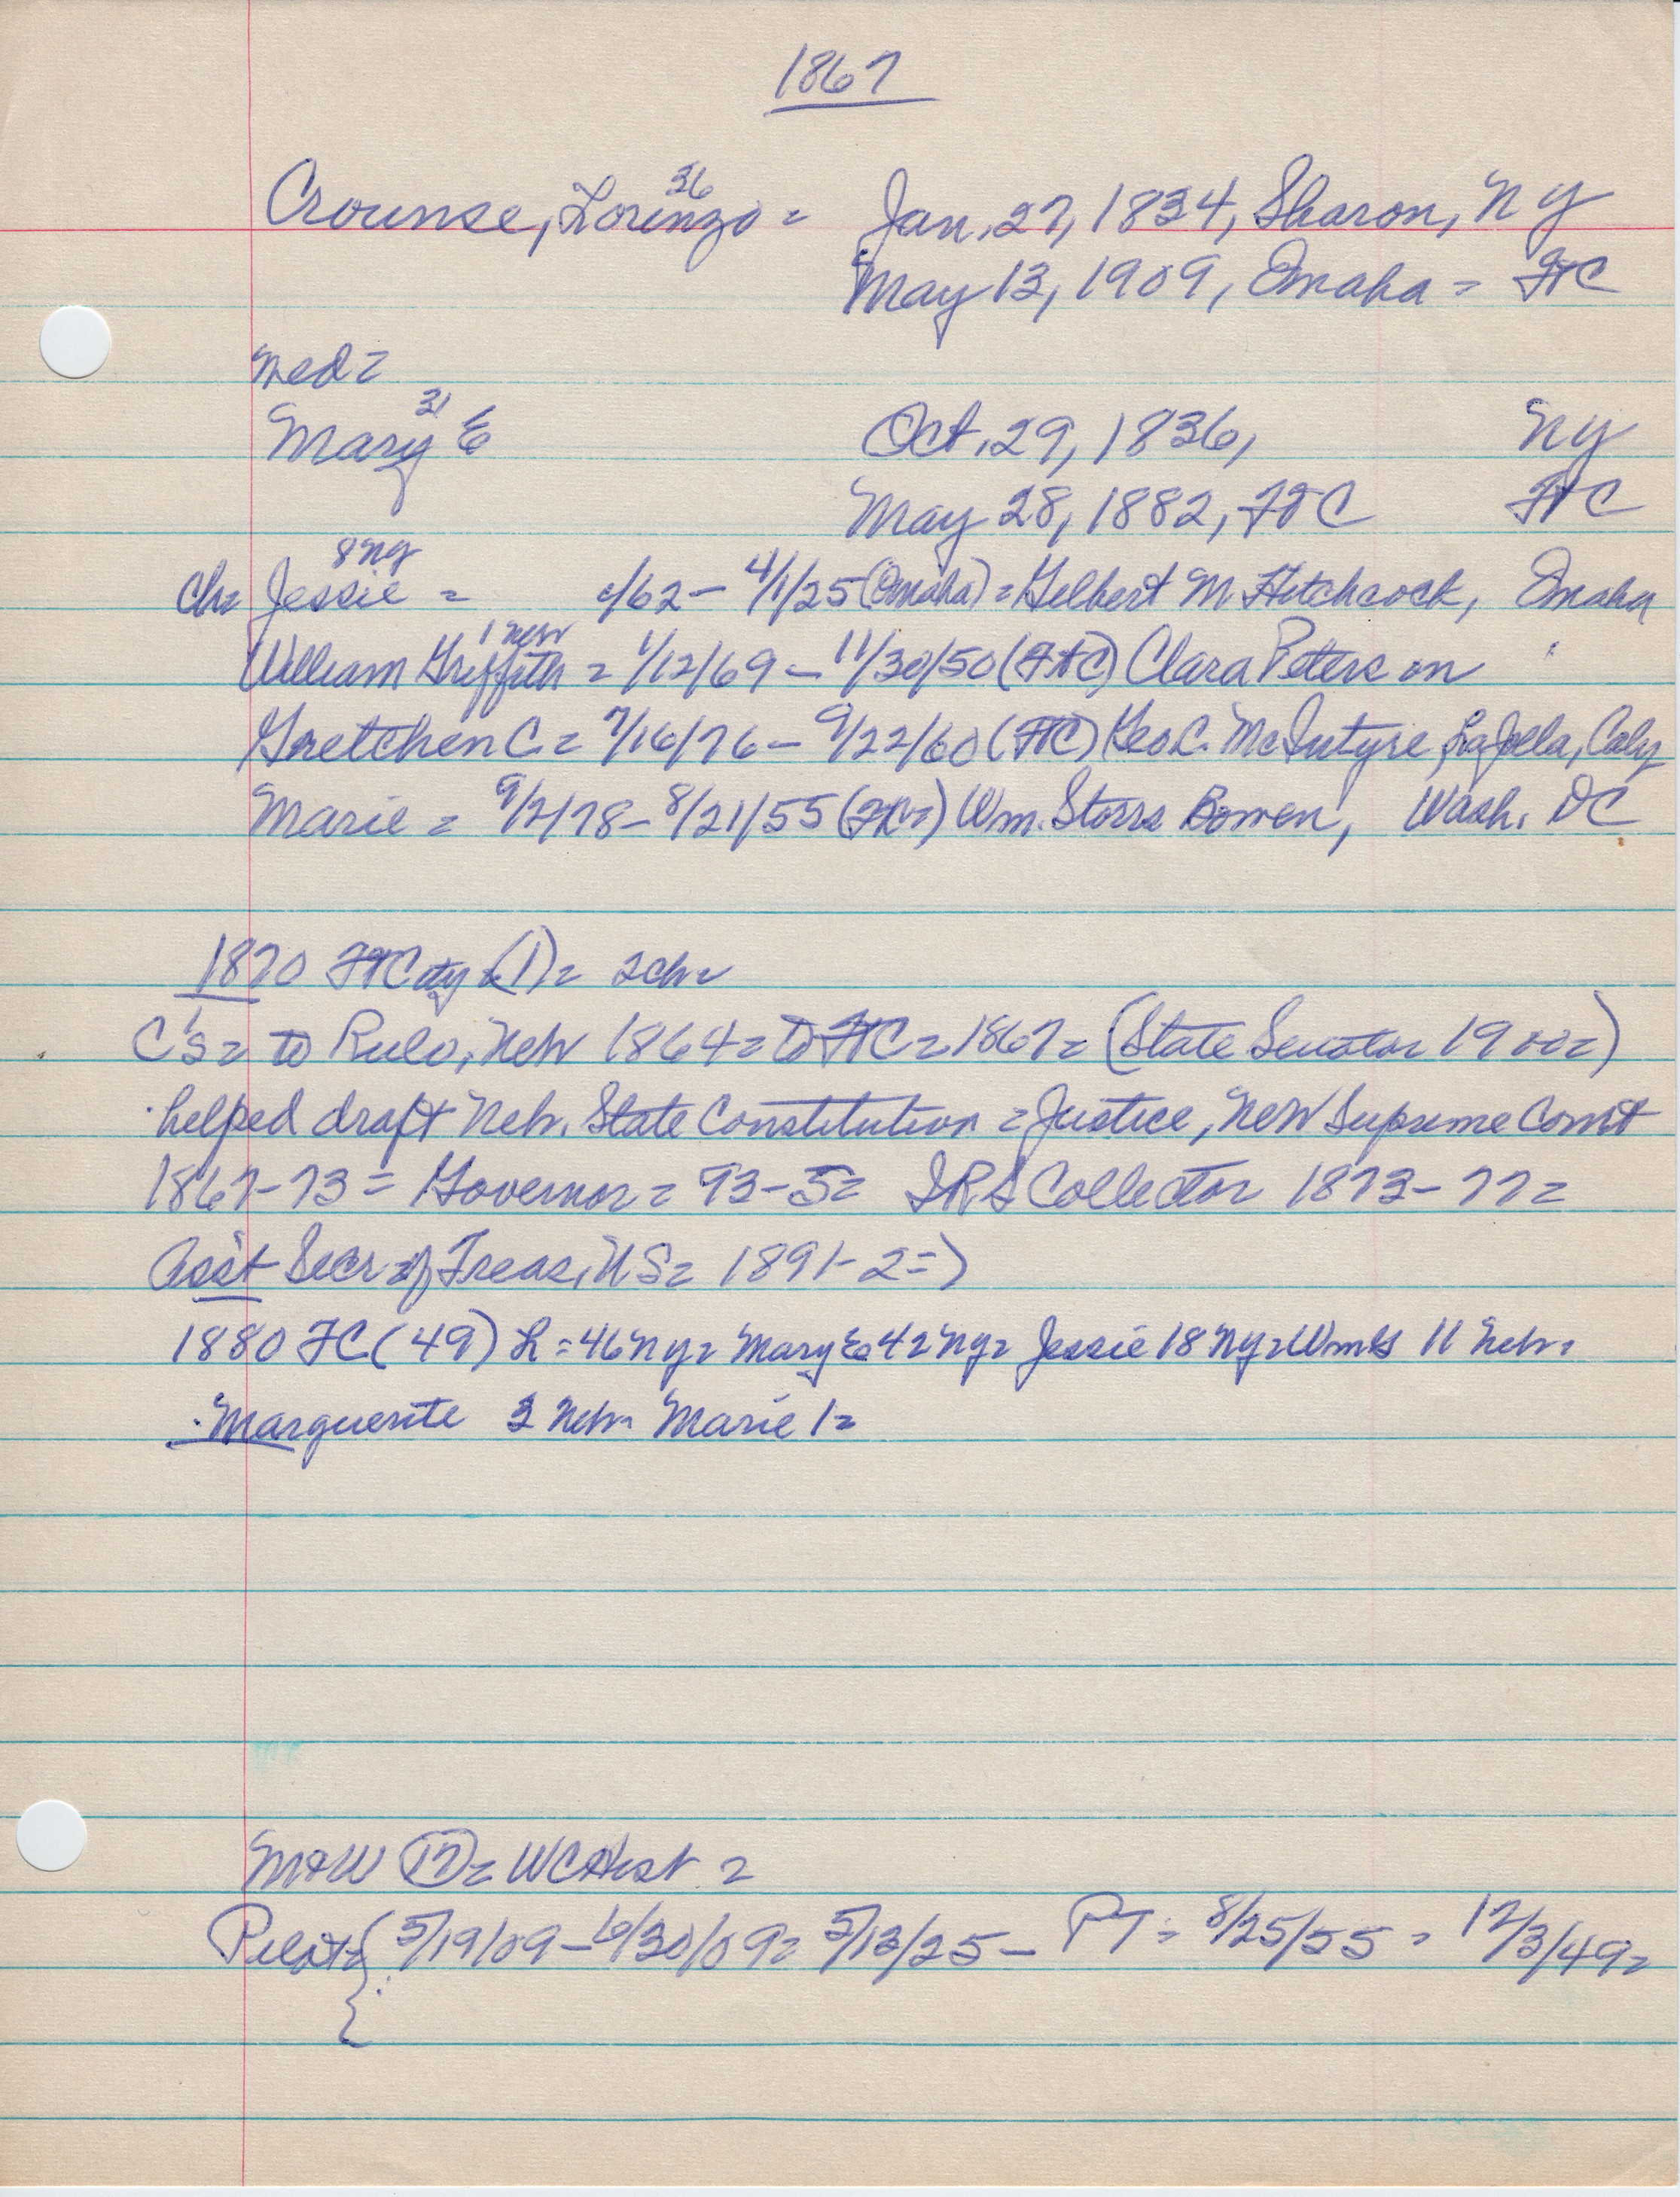 1867
36
Crounse, Lorenzo = Jan. 27, 1834, Sharon, NY
May 13, 1909, Omaha = FtC
med =
31
Mary E Oct. 29, 1836, NY
May 28, 1882, FtC FtC
8 NY
ch= Jessie = /62 - 4/1/25 (Omaha) = Gilbert M. Hitchcock, Omaha
1 Neb
William Griffith = 1/12/69 - 11/30/50 (FtC) Clara Peterson "
Gretchen C. = 7/16/76 - 9/22/60 (FtC) Geo C. McIntyre, LaJolla, Calif
Marie = 9/2/78 - 8/21/55 (FtC) Wm. Storrs Bowen, Wash. DC
1870 FtC (1) = 2ch =
C's = to Rulo, Neb 1864 = to FtC = 1867 = (State Senator 1900 =)
helped draft Neb. State Constitution = Justice, Neb Supreme Court
1867-73 = Governor = 93-5 = IRS Collector 1873-77 =
Ass't Secr of Treas, US = 1891-2 =)
1880 FC (49) L = 46 NY = Mary E = 42 NY = Jessie 18 NY = Wm 11 Neb =
Marguerite 3 Neb = Marie 1 =
M&W 17 = WCHist =
Pilot { 5/19/09 - 6/30/09 = 5/13/25 - PT = 8/25/55 = 12/3/49 =